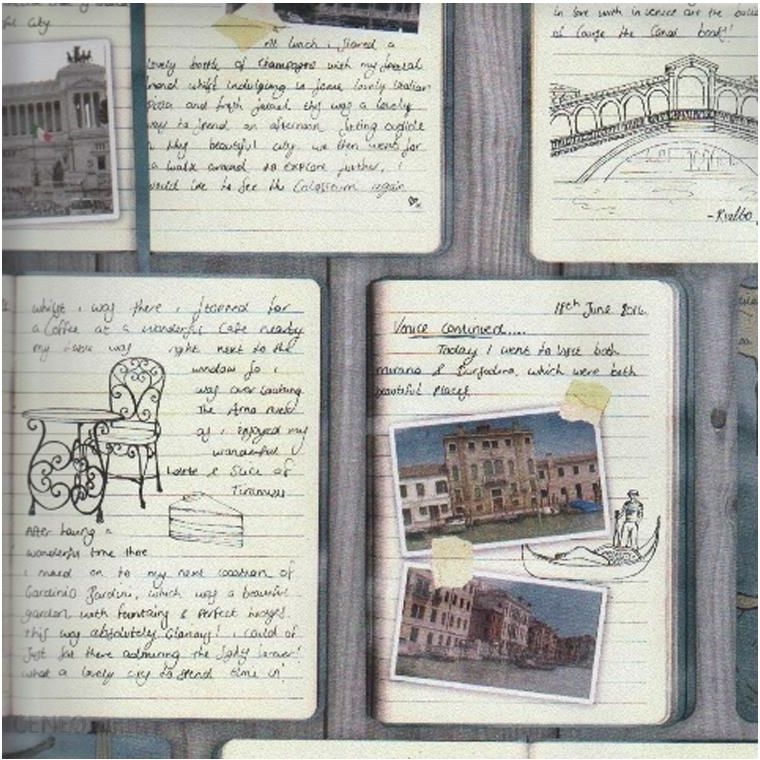 ful city
in love with in venice are the
of course the Canal boats!
lunch i shared a
lovely bottle of Champagne with my special
friend whilst indulging in some lovely italian
and fresh it was a lovely
way to spend an afternoon
beautiful city we then went for
a walk around to explore further, i
would love to see the Colosseum again
- Rialto
whilst i was there i stopped for
a coffee at a wonderful Cafe nearby
my table was right next to the
window so i
was over looking
The Arno river
as i enjoyed my
wonderful
Latte & Slice of
Tiramisu
After having a
wonderful time there
i moved on to my next location of
Giardini, which was a beautiful
garden with fountains & perfect hedges.
this was absolutely i could of
just sat there admiring the
what a lovely city to spend time in!
18th June 2016
Venice continued....
Today I went to visit both
murano & which were both
beautiful places
CENEO